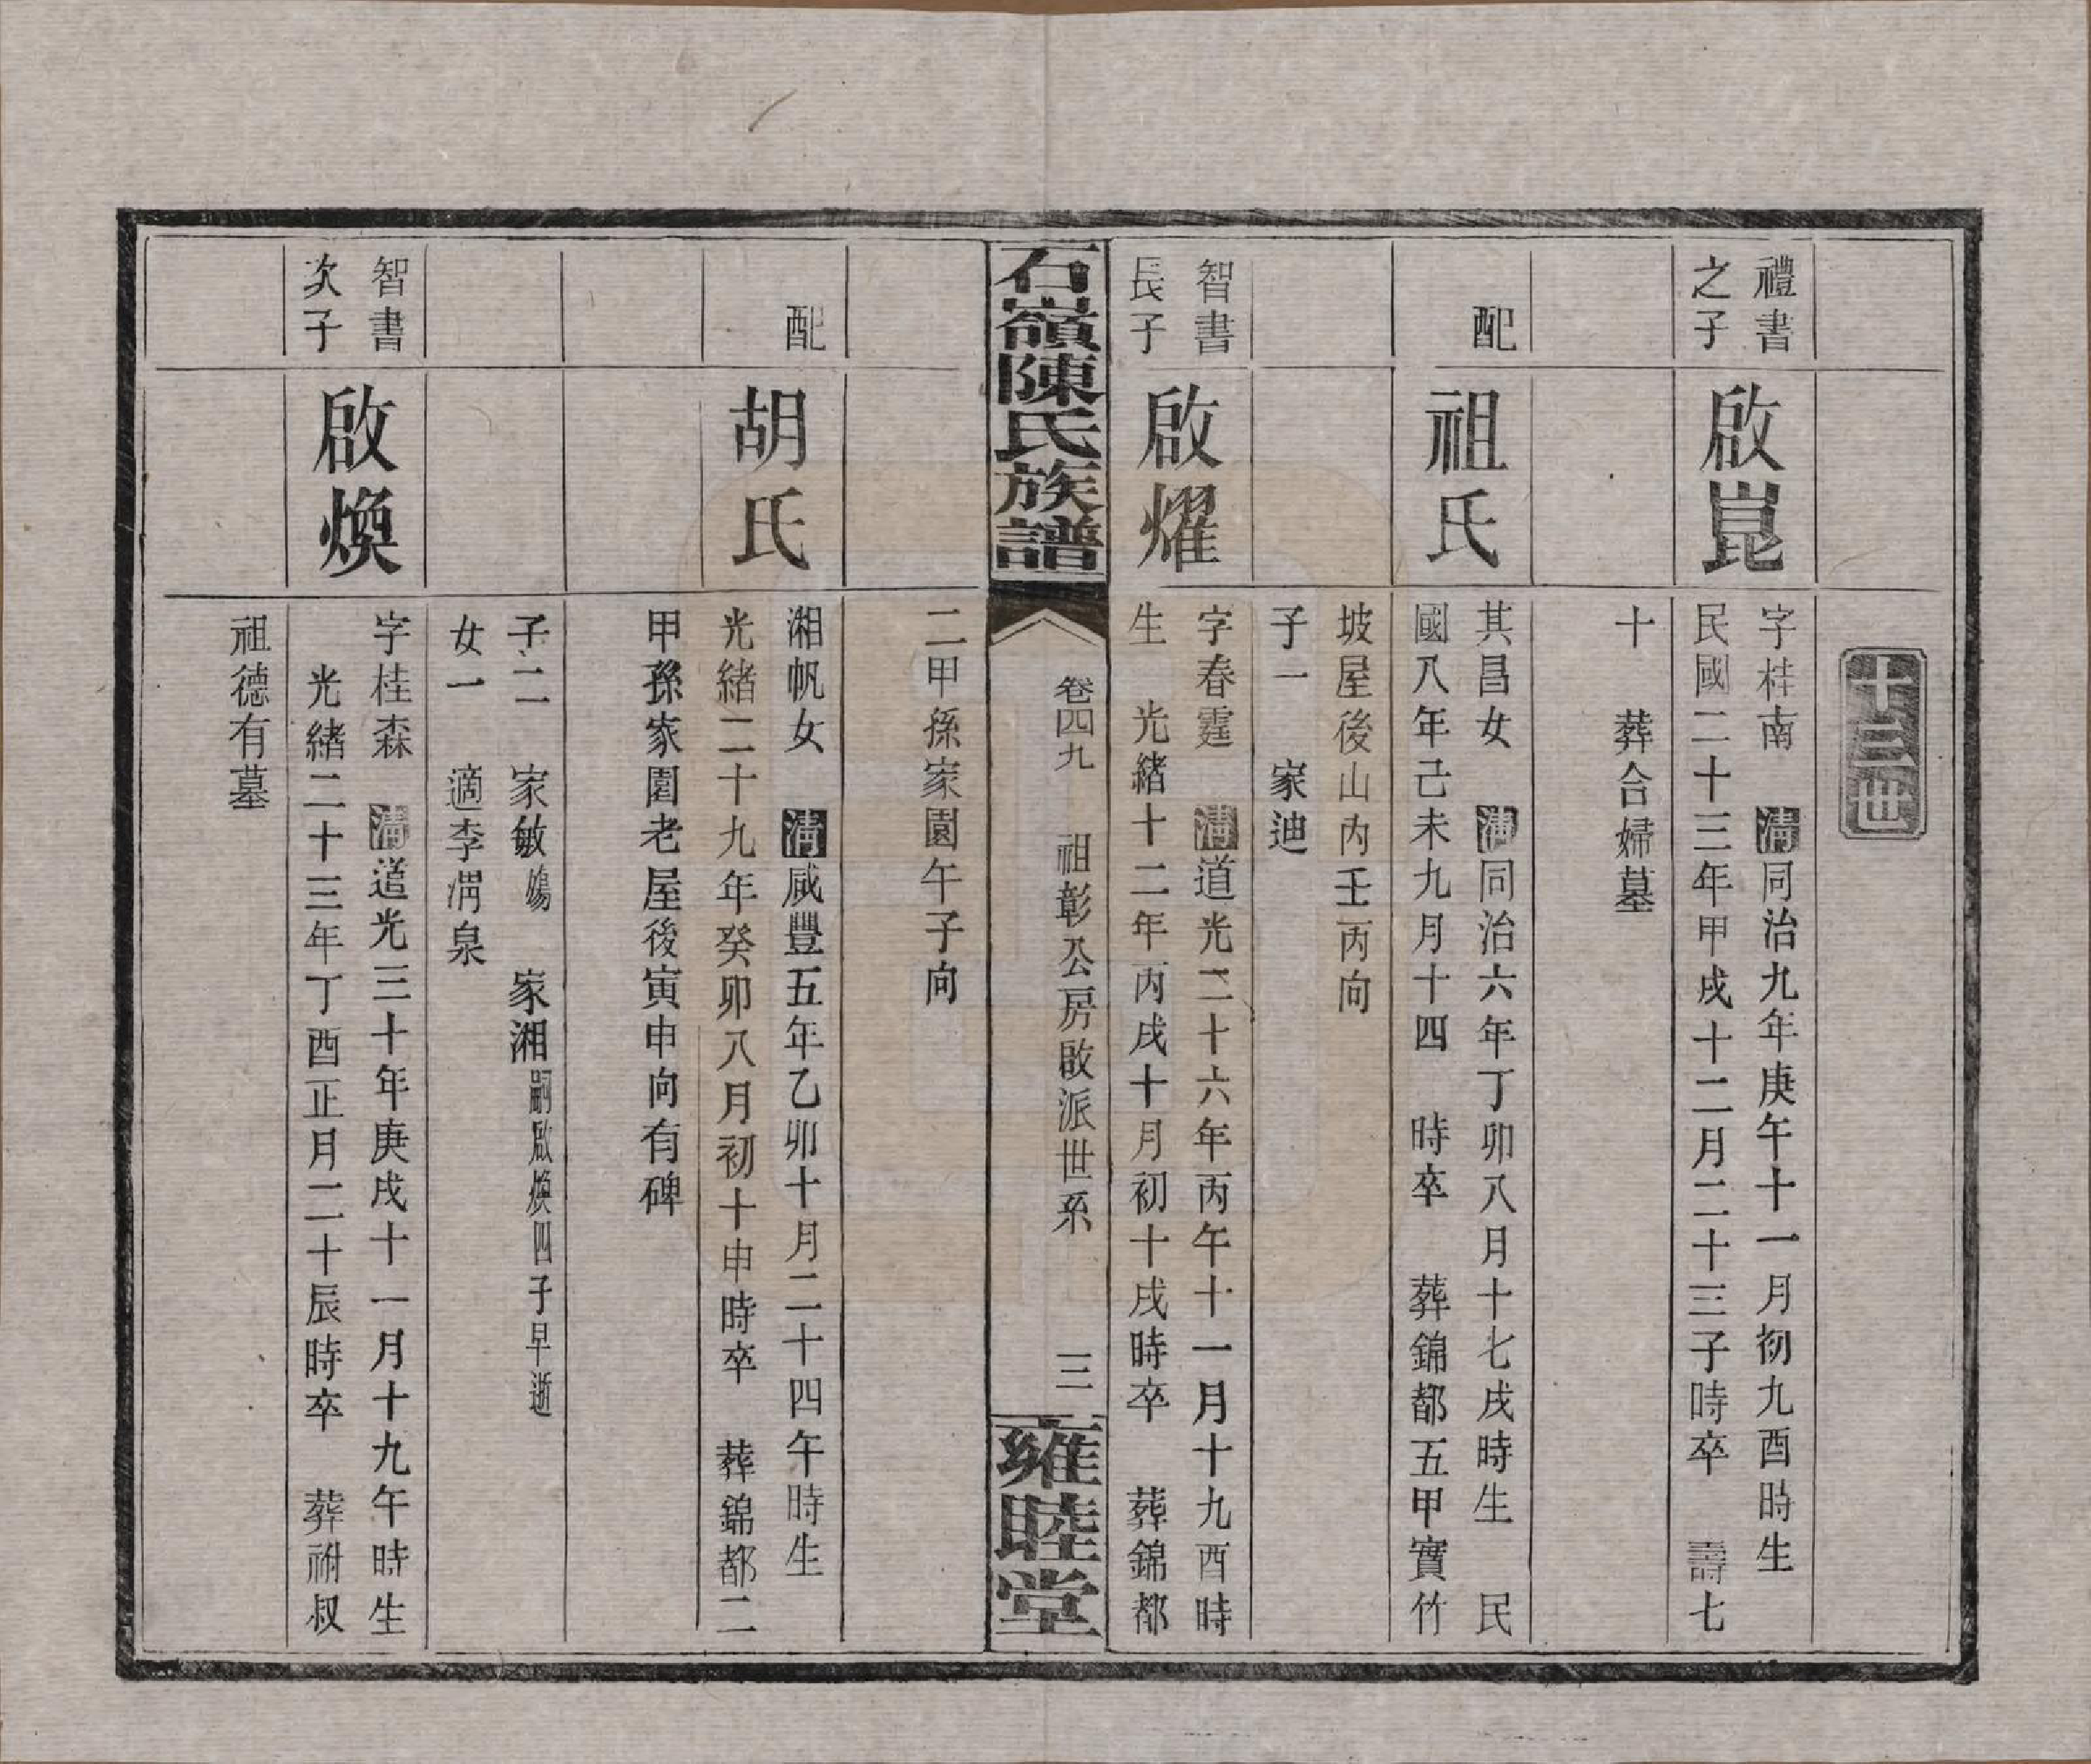 十三世
禮書
之子
啟崑
字桂南　清同治九年庚午十一月初九酉時生
民國二十三年甲戌十二月二十三子時卒　壽七
十　葬合婦墓
配
祖氏
其昌女　清同治六年丁卯八月十七戌時生　民
國八年己未九月十四　時卒　葬錦都五甲寶竹
坡屋後山內壬丙向
子一　家迪
智書
長子
啟燿
字春霆　清道光二十六年丙午十一月十九酉時
生　光緒十二年丙戌十月初十戌時卒　葬錦都
石嶺陳氏族譜
卷四九　祖彰公房啟派世系　三
雍睦堂
二甲孫家園午子向
配
胡氏
湘帆女　清咸豐五年乙卯十月二十四午時生
光緒二十九年癸卯八月初十申時卒　葬錦都二
甲孫家園老屋後寅申向有碑
子二　家敏殤　家湘嗣啟煥四子早逝
女一　適李渭泉
智書
次子
啟煥
字桂森　清道光三十年庚戌十一月十九午時生
光緒二十三年丁酉正月二十辰時卒　葬祔叔
祖德有墓